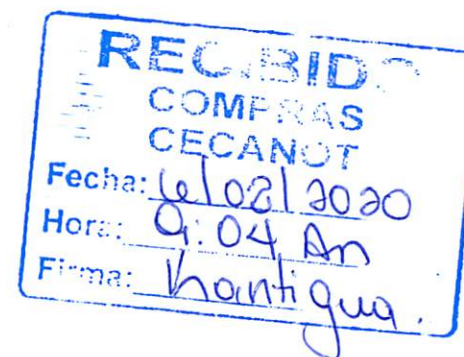 RECIBIDO
COMPRAS
CECANOT
Fecha: 6/02/2020
Hora: 9:04 Am
Firma: Kantigua.